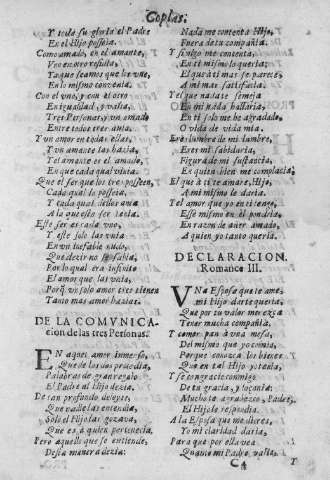 Coplas.
Y toda su gloria el Padre
En el Hijo posseia.
Como amado, en el amante,
Vno en otro residia,
Y aquesse amor que los vne,
En lo mismo conuenia.
Con el vno, y con el otro
En igualdad, y valia,
Tres Personas, y vn amado
Entre todos tres auia.
Y vn amor en todas ellas,
Y vn amante las hazia,
Y el amante es el amado,
En que cada qual viuia.
Que el ser que los tres posseen,
Cada qual lo posseia,
Y cada qual dellos ama
A la que este ser tenia.
Este ser es cada vno,
Y este solo las vnia
En vn inefable nudo,
Que dezir no se sabia.
Por lo qual era infinito
El amor que las vnia,
Porq̃ vn solo amor tres tienen
DE LA COMVNICA-
cion de las tres Personas.
EN aquel amor inmenso,
Que de los dos procedia,
Palabras de gran regalo
El Padre al Hijo dezia.
De tan profundo deleyte,
Que nadie las entendia,
Solo el Hijo las gozaua,
Que es à quien pertenecia.
Pero aquello que se entiende,
Desta manera dezia:
Nada me contenta Hijo,
Fuera de tu compañia.
Y si algo me contenta,
En ti mismo lo queria;
El que a ti mas se parece,
A mi mas satisfazia.
Y el que nada te semeja
En mi nada hallaria,
En ti solo me he agradado,
O vida de vida mia.
Eres lumbre de mi lumbre,
Eres mi sabiduria,
Figura de mi sustancia,
En quien bien me complacia.
El que à ti te amare, Hijo,
A mi mismo le daria.
Y el amor que yo en ti tengo,
Esse mismo en èl pondria,
En razon de auer amado
A quien yo tanto queria.
DECLARACION.
Romance III.
VNa Esposa que te ame,
mi Hijo darte queria,
Que por tu valor merezca
Tener nuestra compañia.
Y comer pan à vna mesa,
Del mismo que yo comia,
Porque conozca los bienes
Que en tal Hijo yo tenia,
Y se congracie conmigo
De tu gracia, y loçania:
Mucho te agradezco, Padre,
El Hijo le respondia.
A la Esposa que me dieres,
Yo mi claridad daria,
Para que por ella vea
Quanto mi Padre valia.
C 4 Y